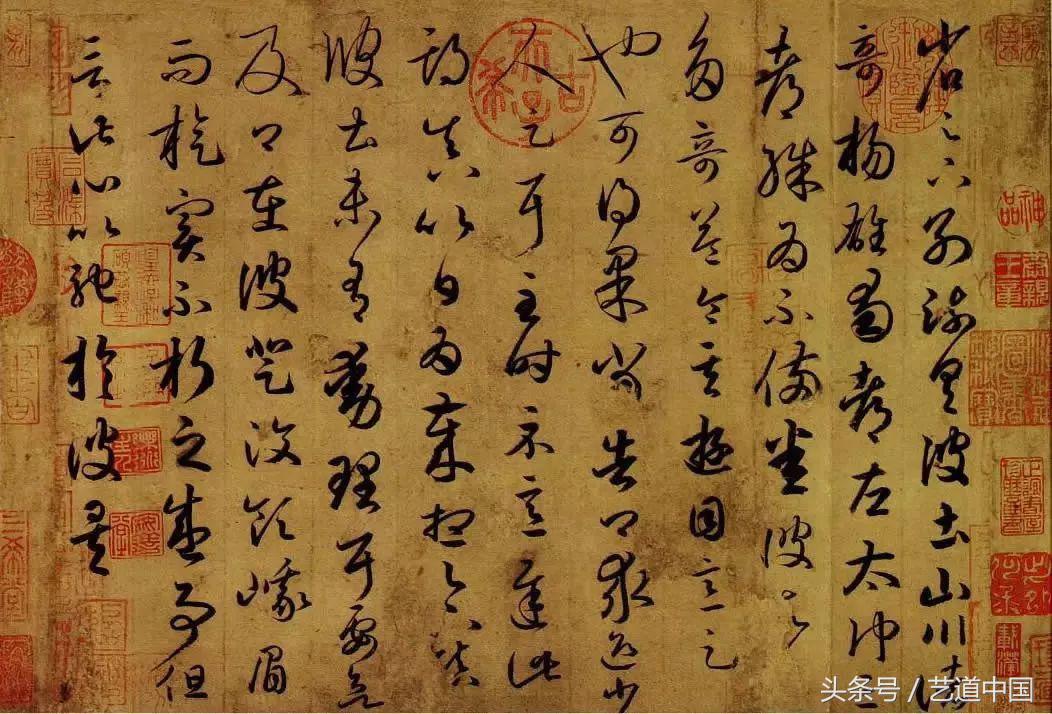 省足下別疏具彼土山川諸
奇楊雄蜀都左太沖三
都殊為不備悉彼故
多奇益令其遊目意足
也可得果當告卿求迎少
人足耳至時示意遲此
期真以日為歲想足下鎮
彼土未有動理耳要欲
及卿在彼登汶領峨眉
而旋實不朽之盛事但
言此心以馳於彼矣
古希天子
神品
头条号 / 艺道中国